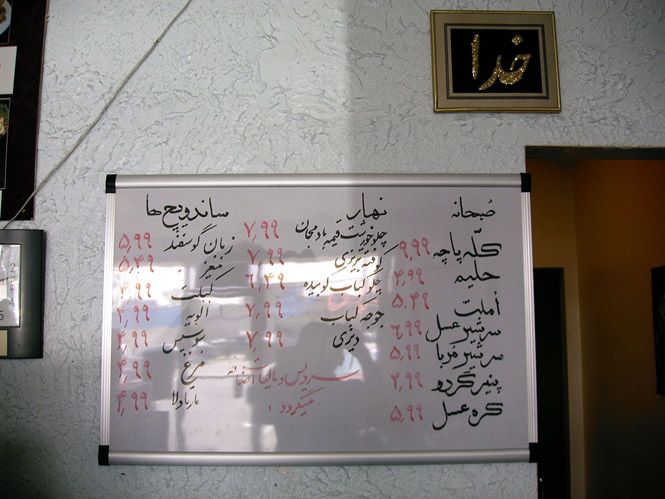 خدا
صبحانه
کلّه پاچه ۹٫۹۹
حلیم ۴٫۹۹
املت ۵٫۴۹
سرشیر عسل ۶٫۹۹
سرشیر مربا ۵٫۹۹
پنیر گردو ۴٫۹۹
کره عسل ۵٫۹۹
نهار
چلو خورشت قیمه بادمجان ۷٫۹۹
کوفته تبریزی ۷٫۹۹
چلو کباب کوبیده ۶٫۴۹
جوجه کباب ۷٫۹۹
دیزی ۷٫۹۹
سرویس و مالیات اضافه
میگردد.
ساندویچ ها
زبان گوسفند ۵٫۹۹
مغز ۵٫۴۹
کتلت ۴٫۹۹
الویه ۴٫۹۹
سوسیس ۴٫۹۹
مرغ ۴٫۹۹
مارتادلا ۴٫۹۹